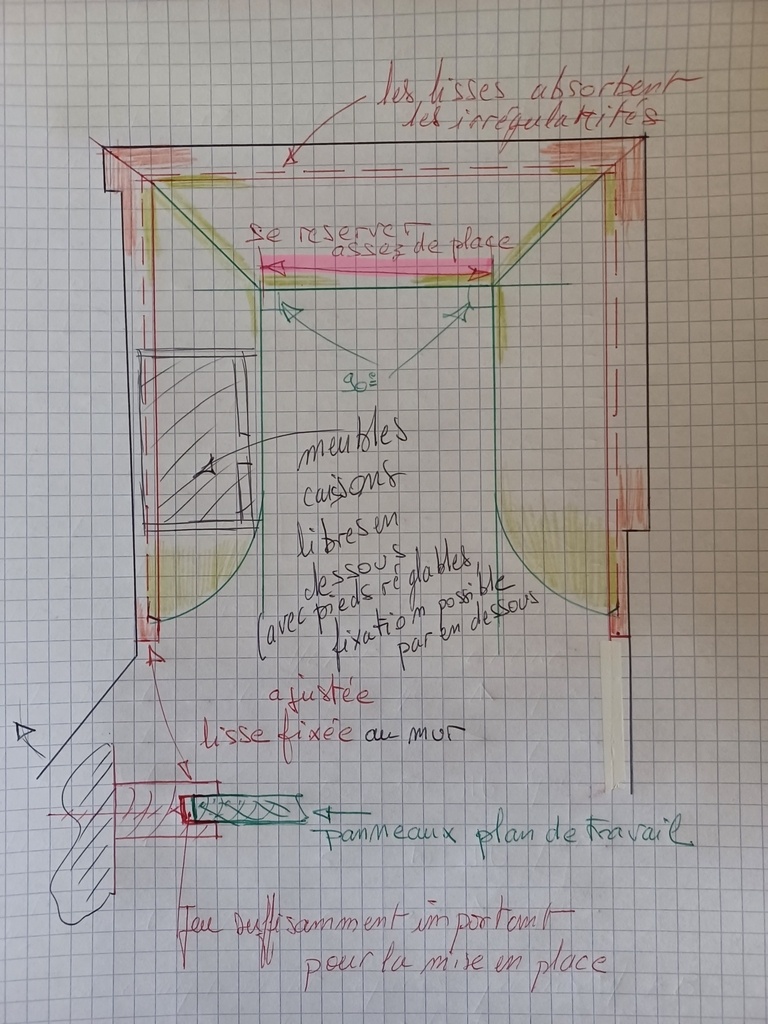 les lisses absorbent
les irrégularités
se reserver
assez de place
90°
meubles
caissons
libres en
dessous
(avec pieds réglables,
fixation possible
par en dessous
ajustée
lisse fixée au mur
panneaux plan de travail
Jeu suffisamment important
pour la mise en place